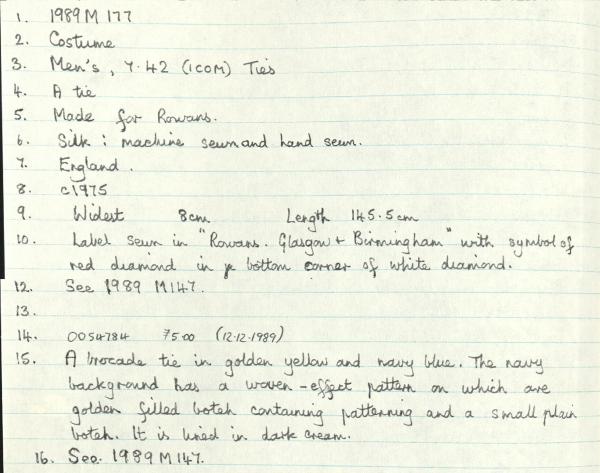 1. 1989 M 177
2. Costume
3. Men's, 7.42 (ICOM) Ties
4. A tie
5. Made for Rowans.
6. Silk; machine sewn and hand sewn.
7. England.
8. c1975
9. Widest 8cm Length 145.5cm
10. Label sewn in "Rowans. Glasgow + Birmingham" with symbol of
red diamond in bottom corner of white diamond.
12. See 1989 M147.
13.
14. 0054784 75.00 (12.12.1989)
15. A brocade tie in golden yellow and navy blue. The navy
background has a woven-effect pattern on which are
golden filled boteh containing patterning and a small plain
boteh. It is lined in dark cream.
16. See. 1989 M147.